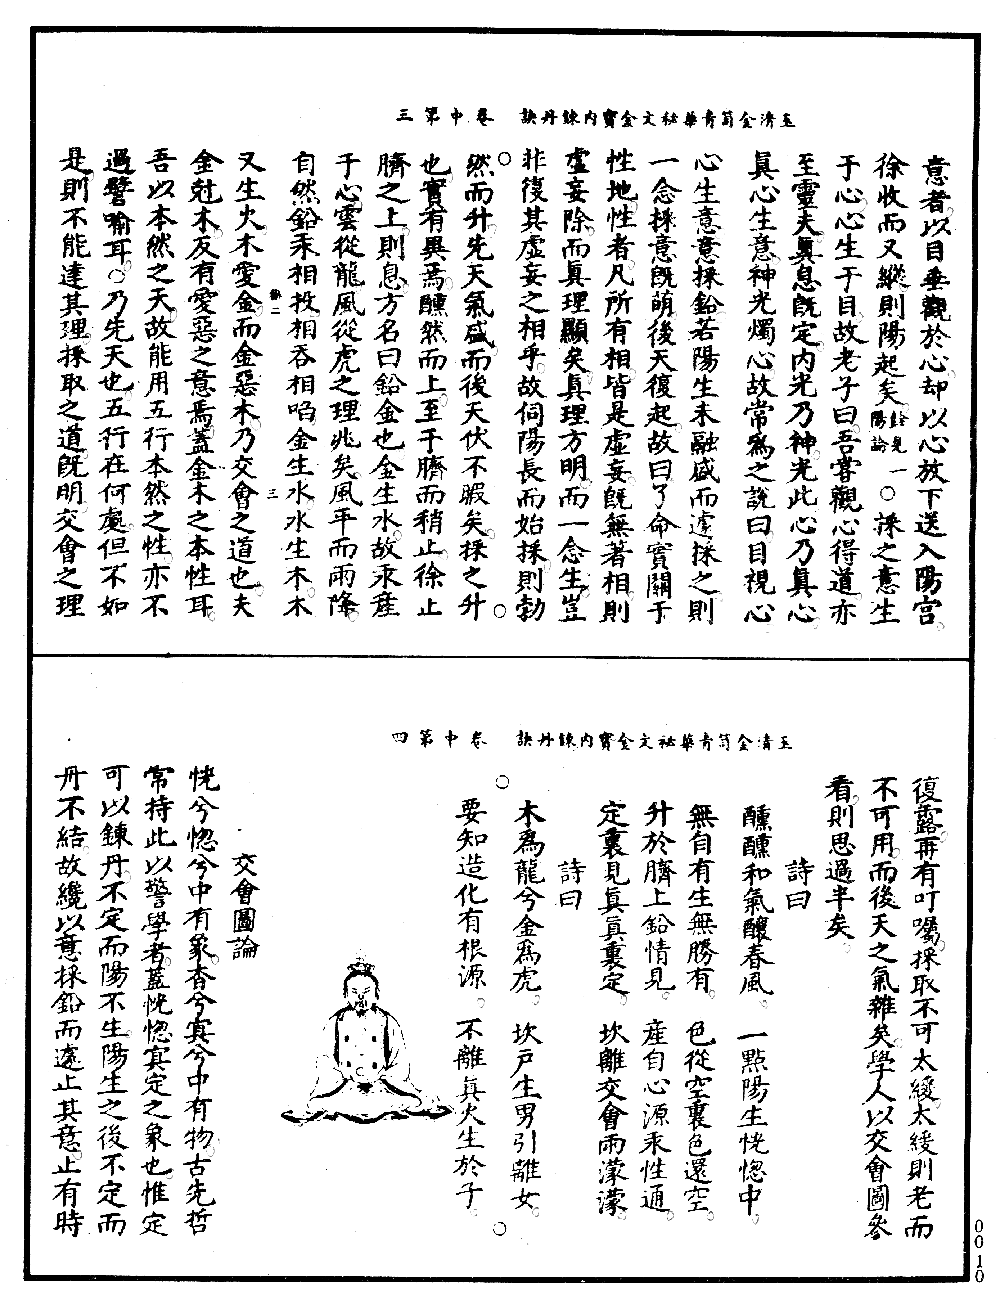 玉清金笥青華秘文金寶內鍊丹訣　卷中第三
意者以目垂觀於心却以心放下送入陽宮
徐收而又縱則陽起矣餘見陽論一〇採之意生
于心心生于目故老子曰吾嘗觀心得道亦
至靈夫真息既定內光乃神光此心乃真心
真心生意神光燭心故常為之說曰目視心
心生意意採鉛若陽生未融盛而遽採之則
一念採意既萌後天復起故曰了命實關于
性地性者凡所有相皆是虛妄既無著相則
虛妄除而真理顯矣真理方明而一念生豈
非復其虛妄之相乎故伺陽長而始採則勃
然而升先天氣盛而後天伏不暇矣採之升
也實有異焉醺然而上至于臍而稍止徐止
臍之上則息方名曰鉛金也金生水故汞產
于心雲從龍風從虎之理兆矣風平而雨降
自然鉛汞相投相吞相啗金生水水生木木
又生火木愛金而金惡木乃交會之道也夫
金尅木反有愛惡之意焉蓋金木之本性耳
吾以本然之天故能用五行本然之性亦不
過譬喻耳〇乃先天也五行在何處但不如
是則不能達其理採取之道既明交會之理
三
玉清金笥青華祕文金寶內鍊丹訣　卷中第四
復露再有叮囑採取不可太緩太緩則老而
不可用而後天之氣雜矣學人以交會圖參
看則思過半矣
詩曰
醺醺和氣釀春風　一點陽生恍惚中
無自有生無勝有　色從空裏色還空
升於臍上鉛情見　產自心源汞性通
定裏見真真裏定　坎離交會雨濛濛
詩曰
木為龍兮金為虎　坎戶生男引離女
要知造化有根源　不離真火生於子
交會圖論
恍兮惚兮中有象杳兮冥兮中有物古先哲
常持此以警學者蓋恍惚冥定之象也惟定
可以鍊丹不定而陽不生陽生之後不定而
丹不結故纔以意採鉛而遽止其意止有時
0010